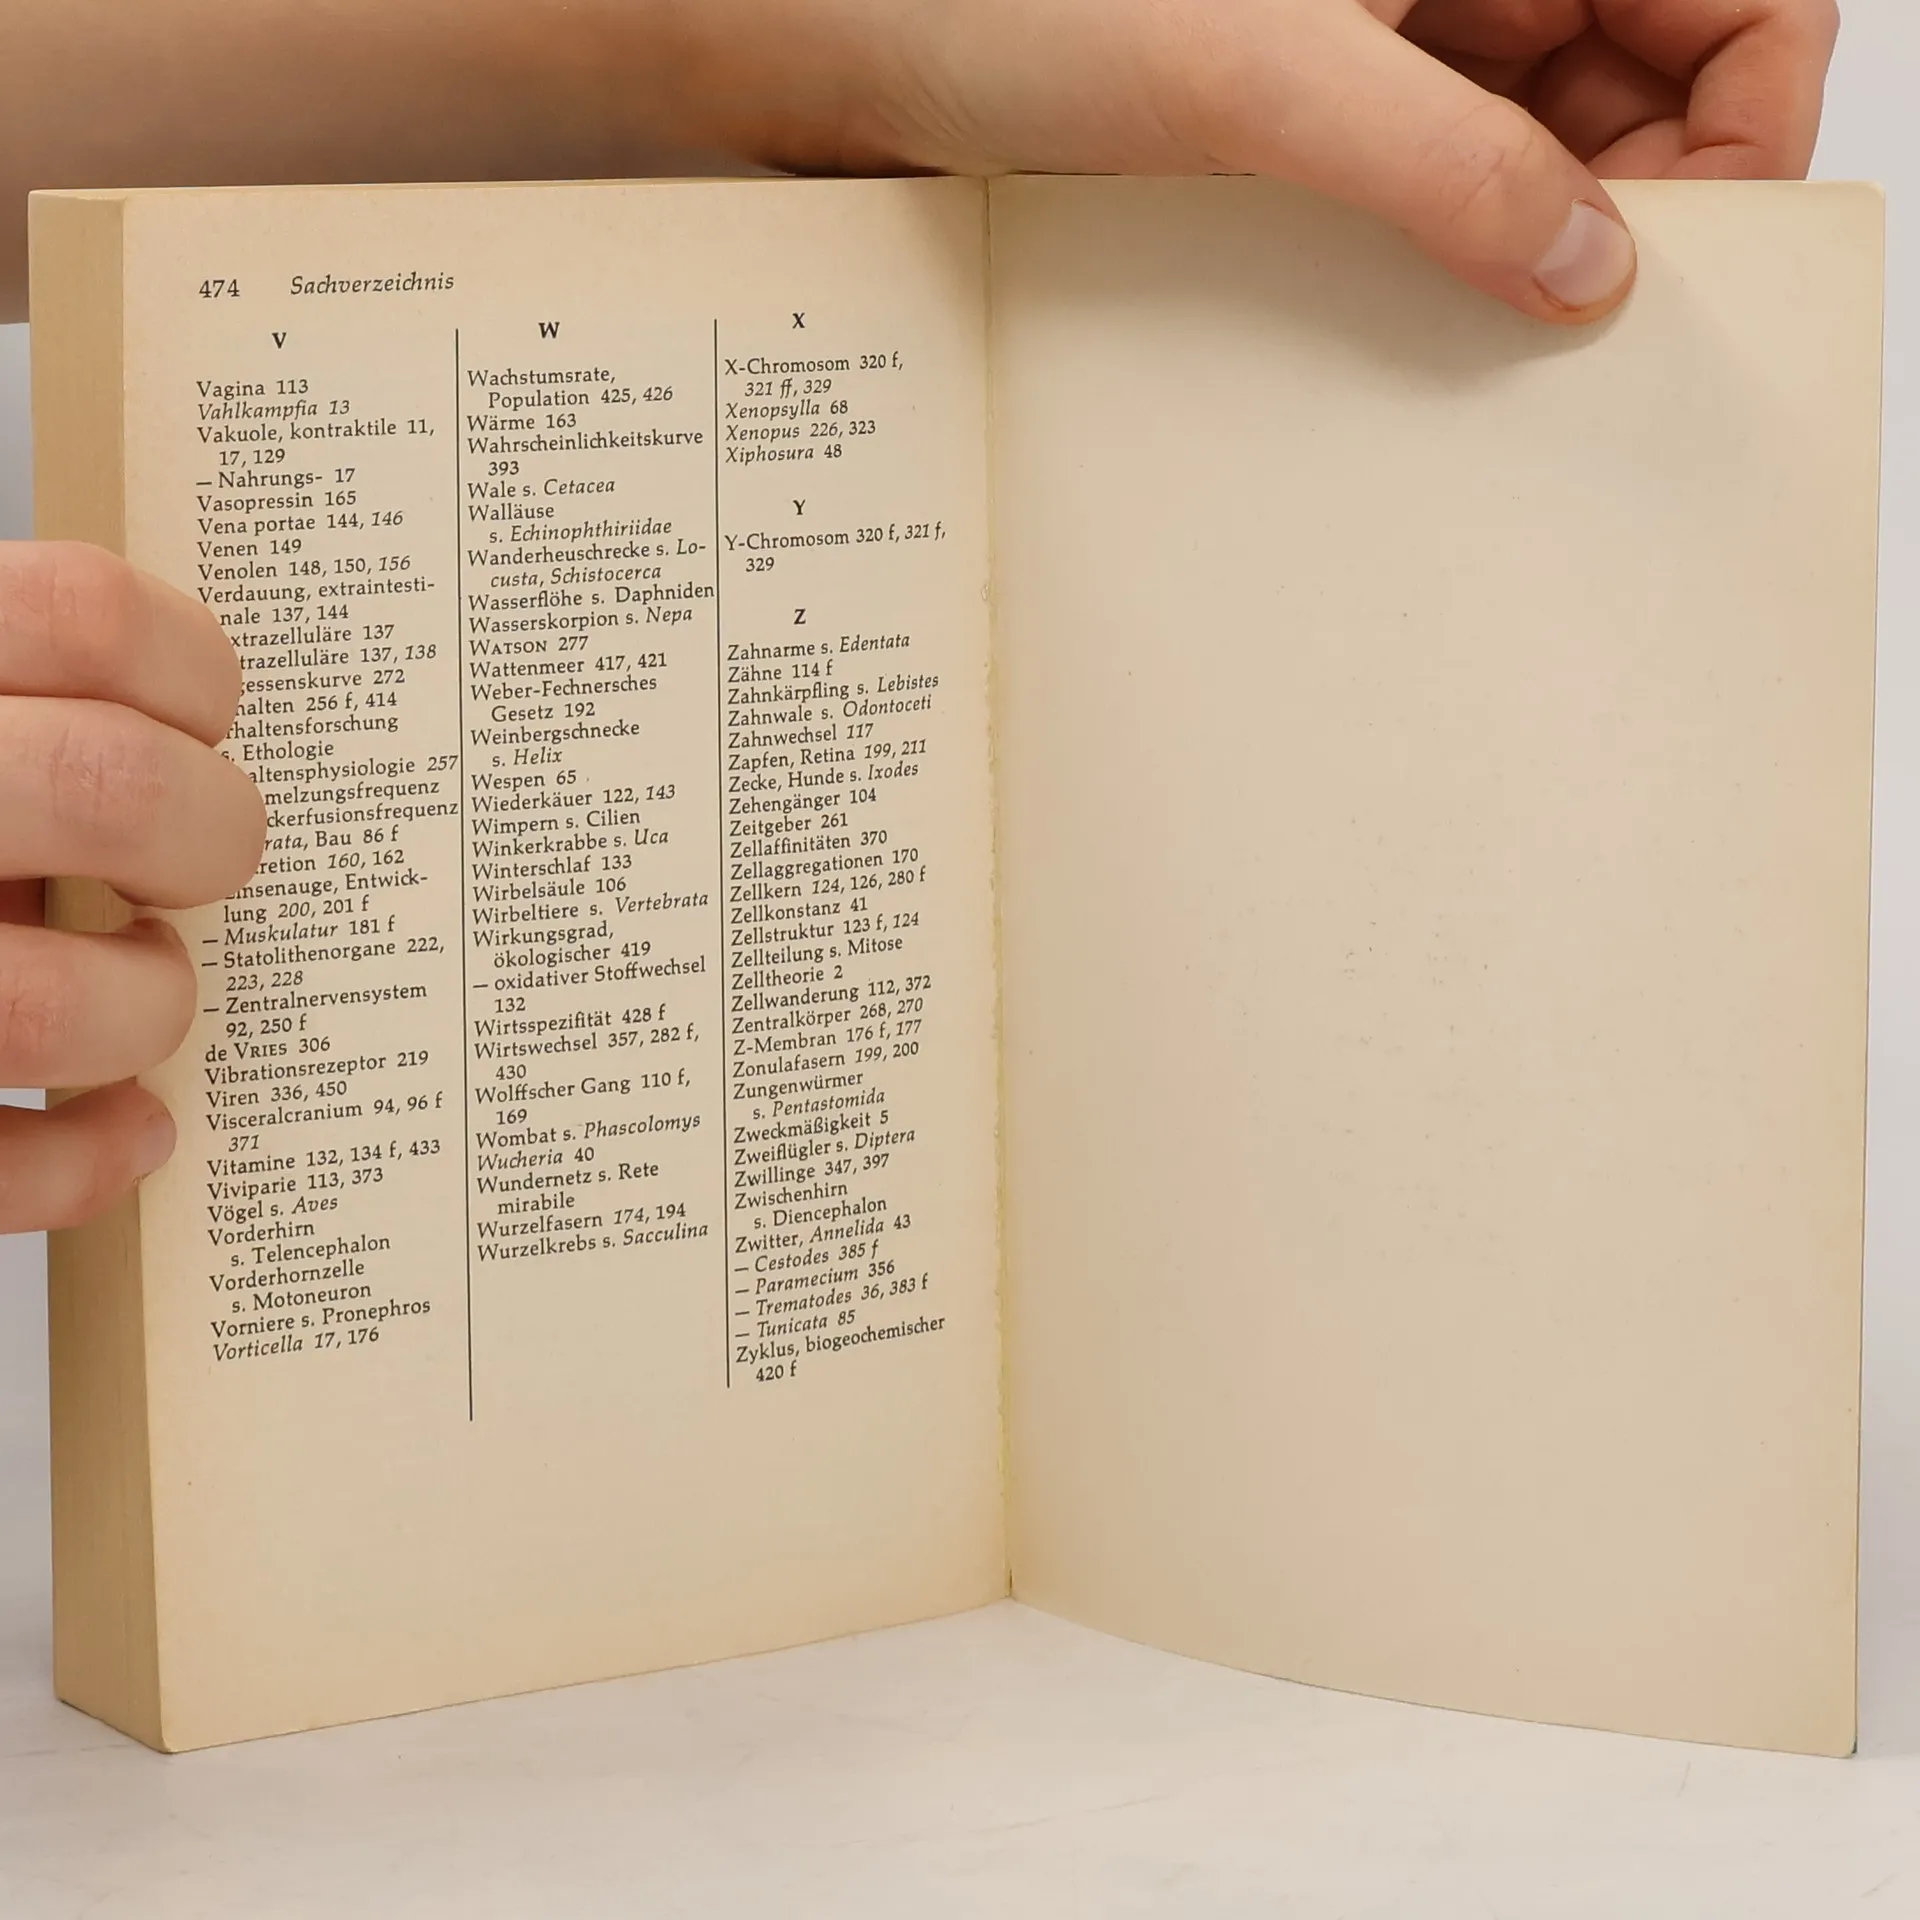 474 Sachverzeichnis
V
Vagina 113
Vahlkampfia 13
Vakuole, kontraktile 11,
17, 129
— Nahrungs- 17
Vasopressin 165
Vena portae 144, 146
Venen 149
Venolen 148, 150, 156
Verdauung, extraintesti-
nale 137, 144
137
137, 138
272
256 f, 414
s. Ethologie
257
86 f
160, 162
Entwick-
lung 200, 201 f
— Muskulatur 181 f
— Statolithenorgane 222,
223, 228
— Zentralnervensystem
92, 250 f
de VRIES 306
Vibrationsrezeptor 219
Viren 336, 450
Visceralcranium 94, 96 f
371
Vitamine 132, 134 f, 433
Viviparie 113, 373
Vögel s. Aves
Vorderhirn
s. Telencephalon
Vorderhornzelle
s. Motoneuron
Vorniere s. Pronephros
Vorticella 17, 176
W
Wachstumsrate,
Population 425, 426
Wärme 163
Wahrscheinlichkeitskurve
393
Wale s. Cetacea
Walläuse
s. Echinophthiriidae
Wanderheuschrecke s. Lo-
custa, Schistocerca
Wasserflöhe s. Daphniden
Wasserskorpion s. Nepa
WATSON 277
Wattenmeer 417, 421
Weber-Fechnersches
Gesetz 192
Weinbergschnecke
s. Helix
Wespen 65
Wiederkäuer 122, 143
Wimpern s. Cilien
Winkerkrabbe s. Uca
Winterschlaf 133
Wirbelsäule 106
Wirbeltiere s. Vertebrata
Wirkungsgrad,
ökologischer 419
— oxidativer Stoffwechsel
132
Wirtsspezifität 428 f
Wirtswechsel 357, 282 f,
430
Wolffscher Gang 110 f,
169
Wombat s. Phascolomys
Wucheria 40
Wundernetz s. Rete
mirabile
Wurzelfasern 174, 194
Wurzelkrebs s. Sacculina
X
X-Chromosom 320 f,
321 ff, 329
Xenopsylla 68
Xenopus 226, 323
Xiphosura 48
Y
Y-Chromosom 320 f, 321 f,
329
Z
Zahnarme s. Edentata
Zähne 114 f
Zahnkärpfling s. Lebistes
Zahnwale s. Odontoceti
Zahnwechsel 117
Zapfen, Retina 199, 211
Zecke, Hunde s. Ixodes
Zehengänger 104
Zeitgeber 261
Zellaffinitäten 370
Zellaggregationen 170
Zellkern 124, 126, 280 f
Zellkonstanz 41
Zellstruktur 123 f, 124
Zellteilung s. Mitose
Zelltheorie 2
Zellwanderung 112, 372
Zentralkörper 268, 270
Z-Membran 176 f, 177
Zonulafasern 199, 200
Zungenwürmer
s. Pentastomida
Zweckmäßigkeit 5
Zweiflügler s. Diptera
Zwillinge 347, 397
Zwischenhirn
s. Diencephalon
Zwitter, Annelida 43
— Cestodes 385 f
— Paramecium 356
— Trematodes 36, 383 f
— Tunicata 85
Zyklus, biogeochemischer
420 f